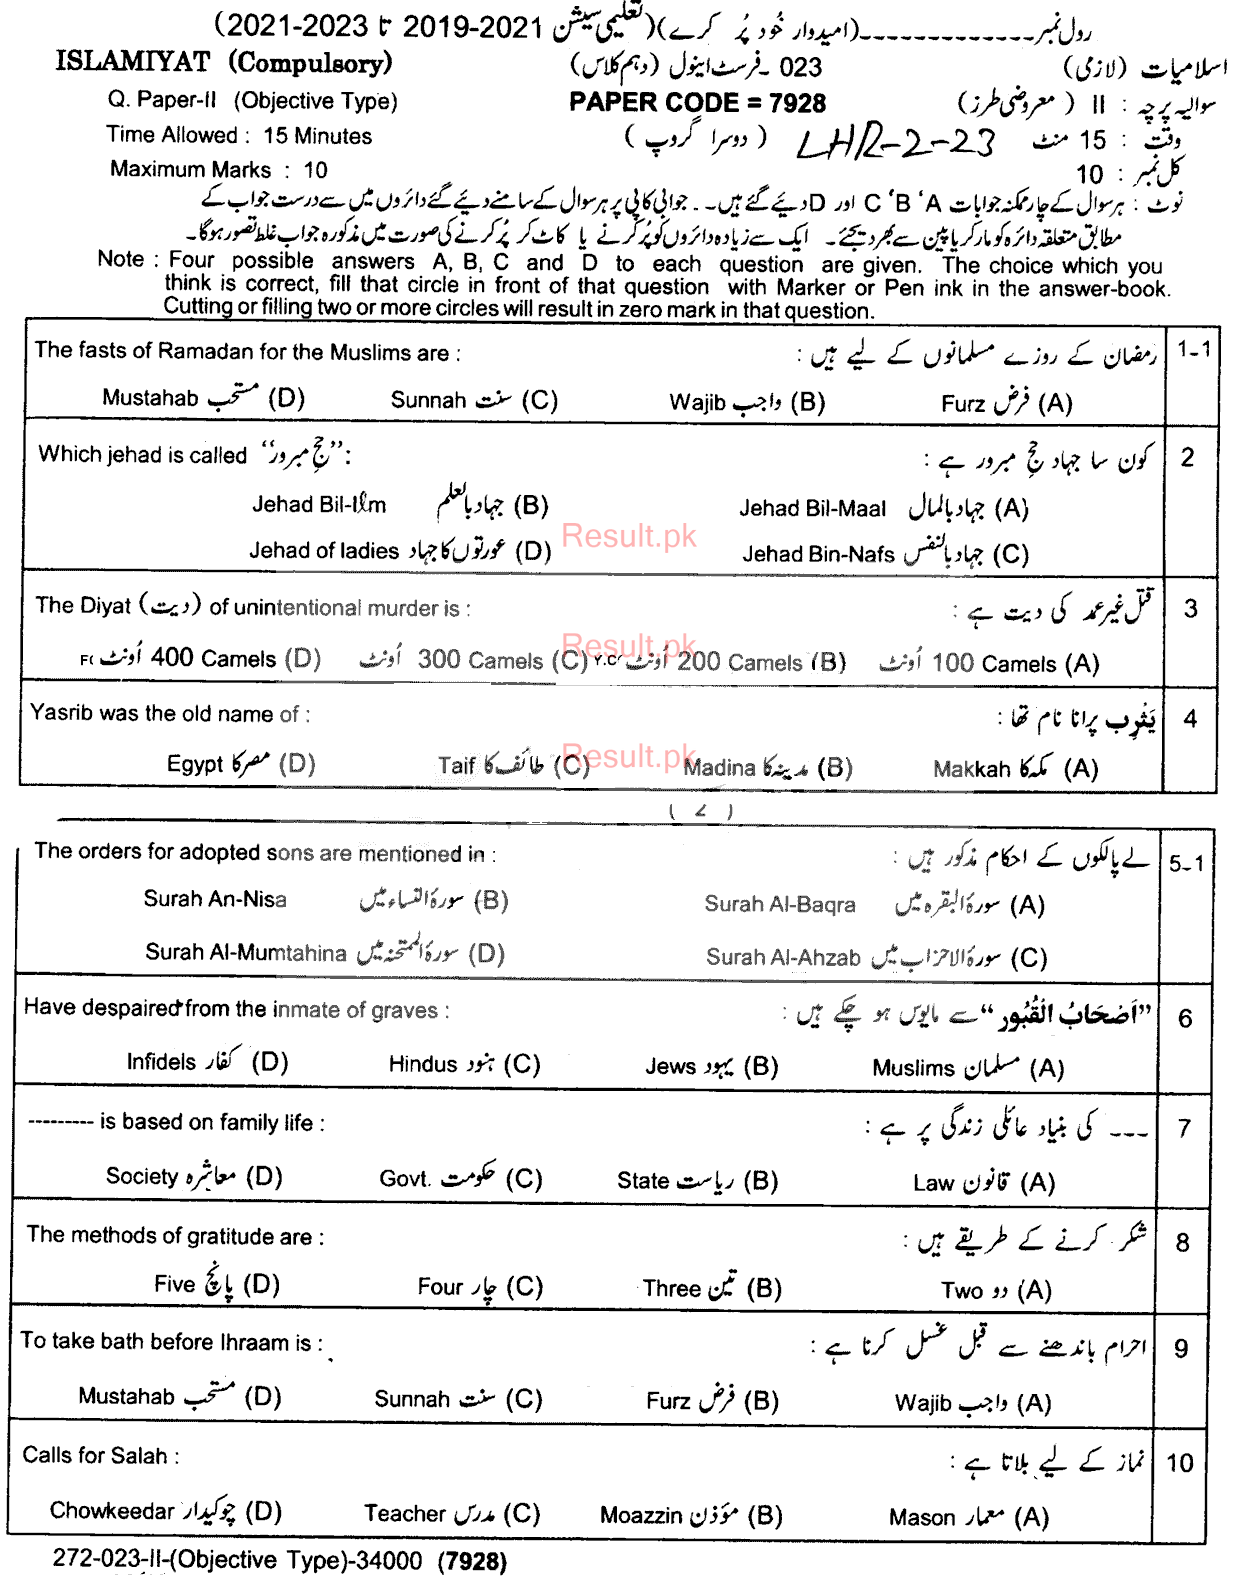 رول نمبر-------------(امیدوار خُود پُر کرے)(تعلیمی سیشن 2021-2019 تا 2023-2021)
ISLAMIYAT (Compulsory) 023 ۔فرسٹ اینول (دہم کلاس) اسلامیات (لازمی)
Q. Paper-II (Objective Type) PAPER CODE = 7928 سوالیہ پرچہ : II ( معروضی طرز)
Time Allowed : 15 Minutes ( دوسرا گروپ ) LHR-2-23 وقت : 15 منٹ
Maximum Marks : 10 کل نمبر : 10
نوٹ : ہر سوال کے چار ممکنہ جوابات A ‘B ‘C اور D دیئے گئے ہیں۔۔ جوابی کاپی پر ہر سوال کے سامنے دیئے گئے دائروں میں سے درست جواب کے
مطابق متعلقہ دائرہ کو مارکر یا پین سے بھر دیجئے۔ ایک سے زیادہ دائروں کو پُر کرنے یا کاٹ کر پُر کرنے کی صورت میں مذکورہ جواب غلط تصور ہوگا۔
Note : Four possible answers A, B, C and D to each question are given. The choice which you
think is correct, fill that circle in front of that question with Marker or Pen ink in the answer-book.
Cutting or filling two or more circles will result in zero mark in that question.
The fasts of Ramadan for the Muslims are : رمضان کے روزے مسلمانوں کے لیے ہیں : 1-1
Mustahab مستحب (D) Sunnah سنت (C) Wajib واجب (B) Furz فرض (A)
Which jehad is called ‘‘حجِ مبرور’’: کون سا جہاد حجِ مبرور ہے : 2
Jehad Bil-Ilm جہاد بالعلم (B) Jehad Bil-Maal جہاد بالمال (A)
Jehad of ladies عورتوں کا جہاد (D) Jehad Bin-Nafs جہاد بالنفس (C)
Result.pk
The Diyat (دیت) of unintentional murder is : قتل غیر عمد کی دیت ہے : 3
اُونٹ 400 Camels (D) اُونٹ 300 Camels (C) اُونٹ 200 Camels (B) اُونٹ 100 Camels (A)
Result.pk
Yasrib was the old name of : یَثْرِب پرانا نام تھا : 4
Egypt مصر کا (D) Taif طائف کا (C) Madina مدینہ کا (B) Makkah مکہ کا (A)
Result.pk
( 2 )
The orders for adopted sons are mentioned in : لے پالکوں کے احکام مذکور ہیں : 5-1
Surah An-Nisa سورۃ النساء میں (B) Surah Al-Baqra سورۃ البقرہ میں (A)
Surah Al-Mumtahina سورۃ الممتحنہ میں (D) Surah Al-Ahzab سورۃ الاحزاب میں (C)
Have despaired from the inmate of graves : ’’اَصْحَابُ الْقُبُور‘‘ سے مایوس ہو چکے ہیں : 6
Infidels کفار (D) Hindus ہنود (C) Jews یہود (B) Muslims مسلمان (A)
--------- is based on family life : --- کی بنیاد عائلی زندگی پر ہے : 7
Society معاشرہ (D) Govt. حکومت (C) State ریاست (B) Law قانون (A)
The methods of gratitude are : شکر کرنے کے طریقے ہیں : 8
Five پانچ (D) Four چار (C) Three تین (B) Two دو (A)
To take bath before Ihraam is : احرام باندھنے سے قبل غسل کرنا ہے : 9
Mustahab مستحب (D) Sunnah سنت (C) Furz فرض (B) Wajib واجب (A)
Calls for Salah : نماز کے لیے بلاتا ہے : 10
Chowkeedar چوکیدار (D) Teacher مدرس (C) Moazzin مؤذن (B) Mason معمار (A)
272-023-II-(Objective Type)-34000 (7928)